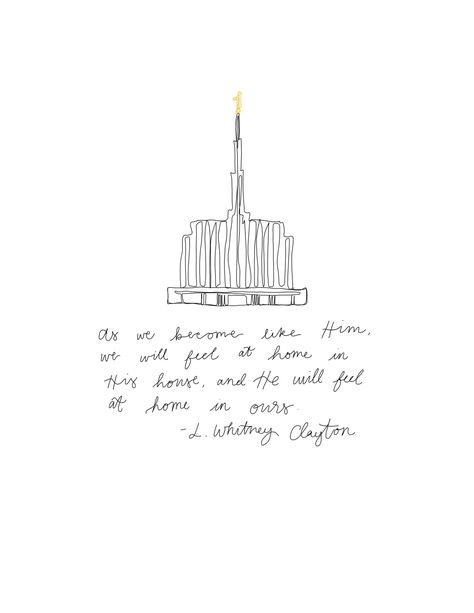 as we become like Him,
we will feel at home in
His house, and He will feel
at home in ours.
-L. Whitney Clayton